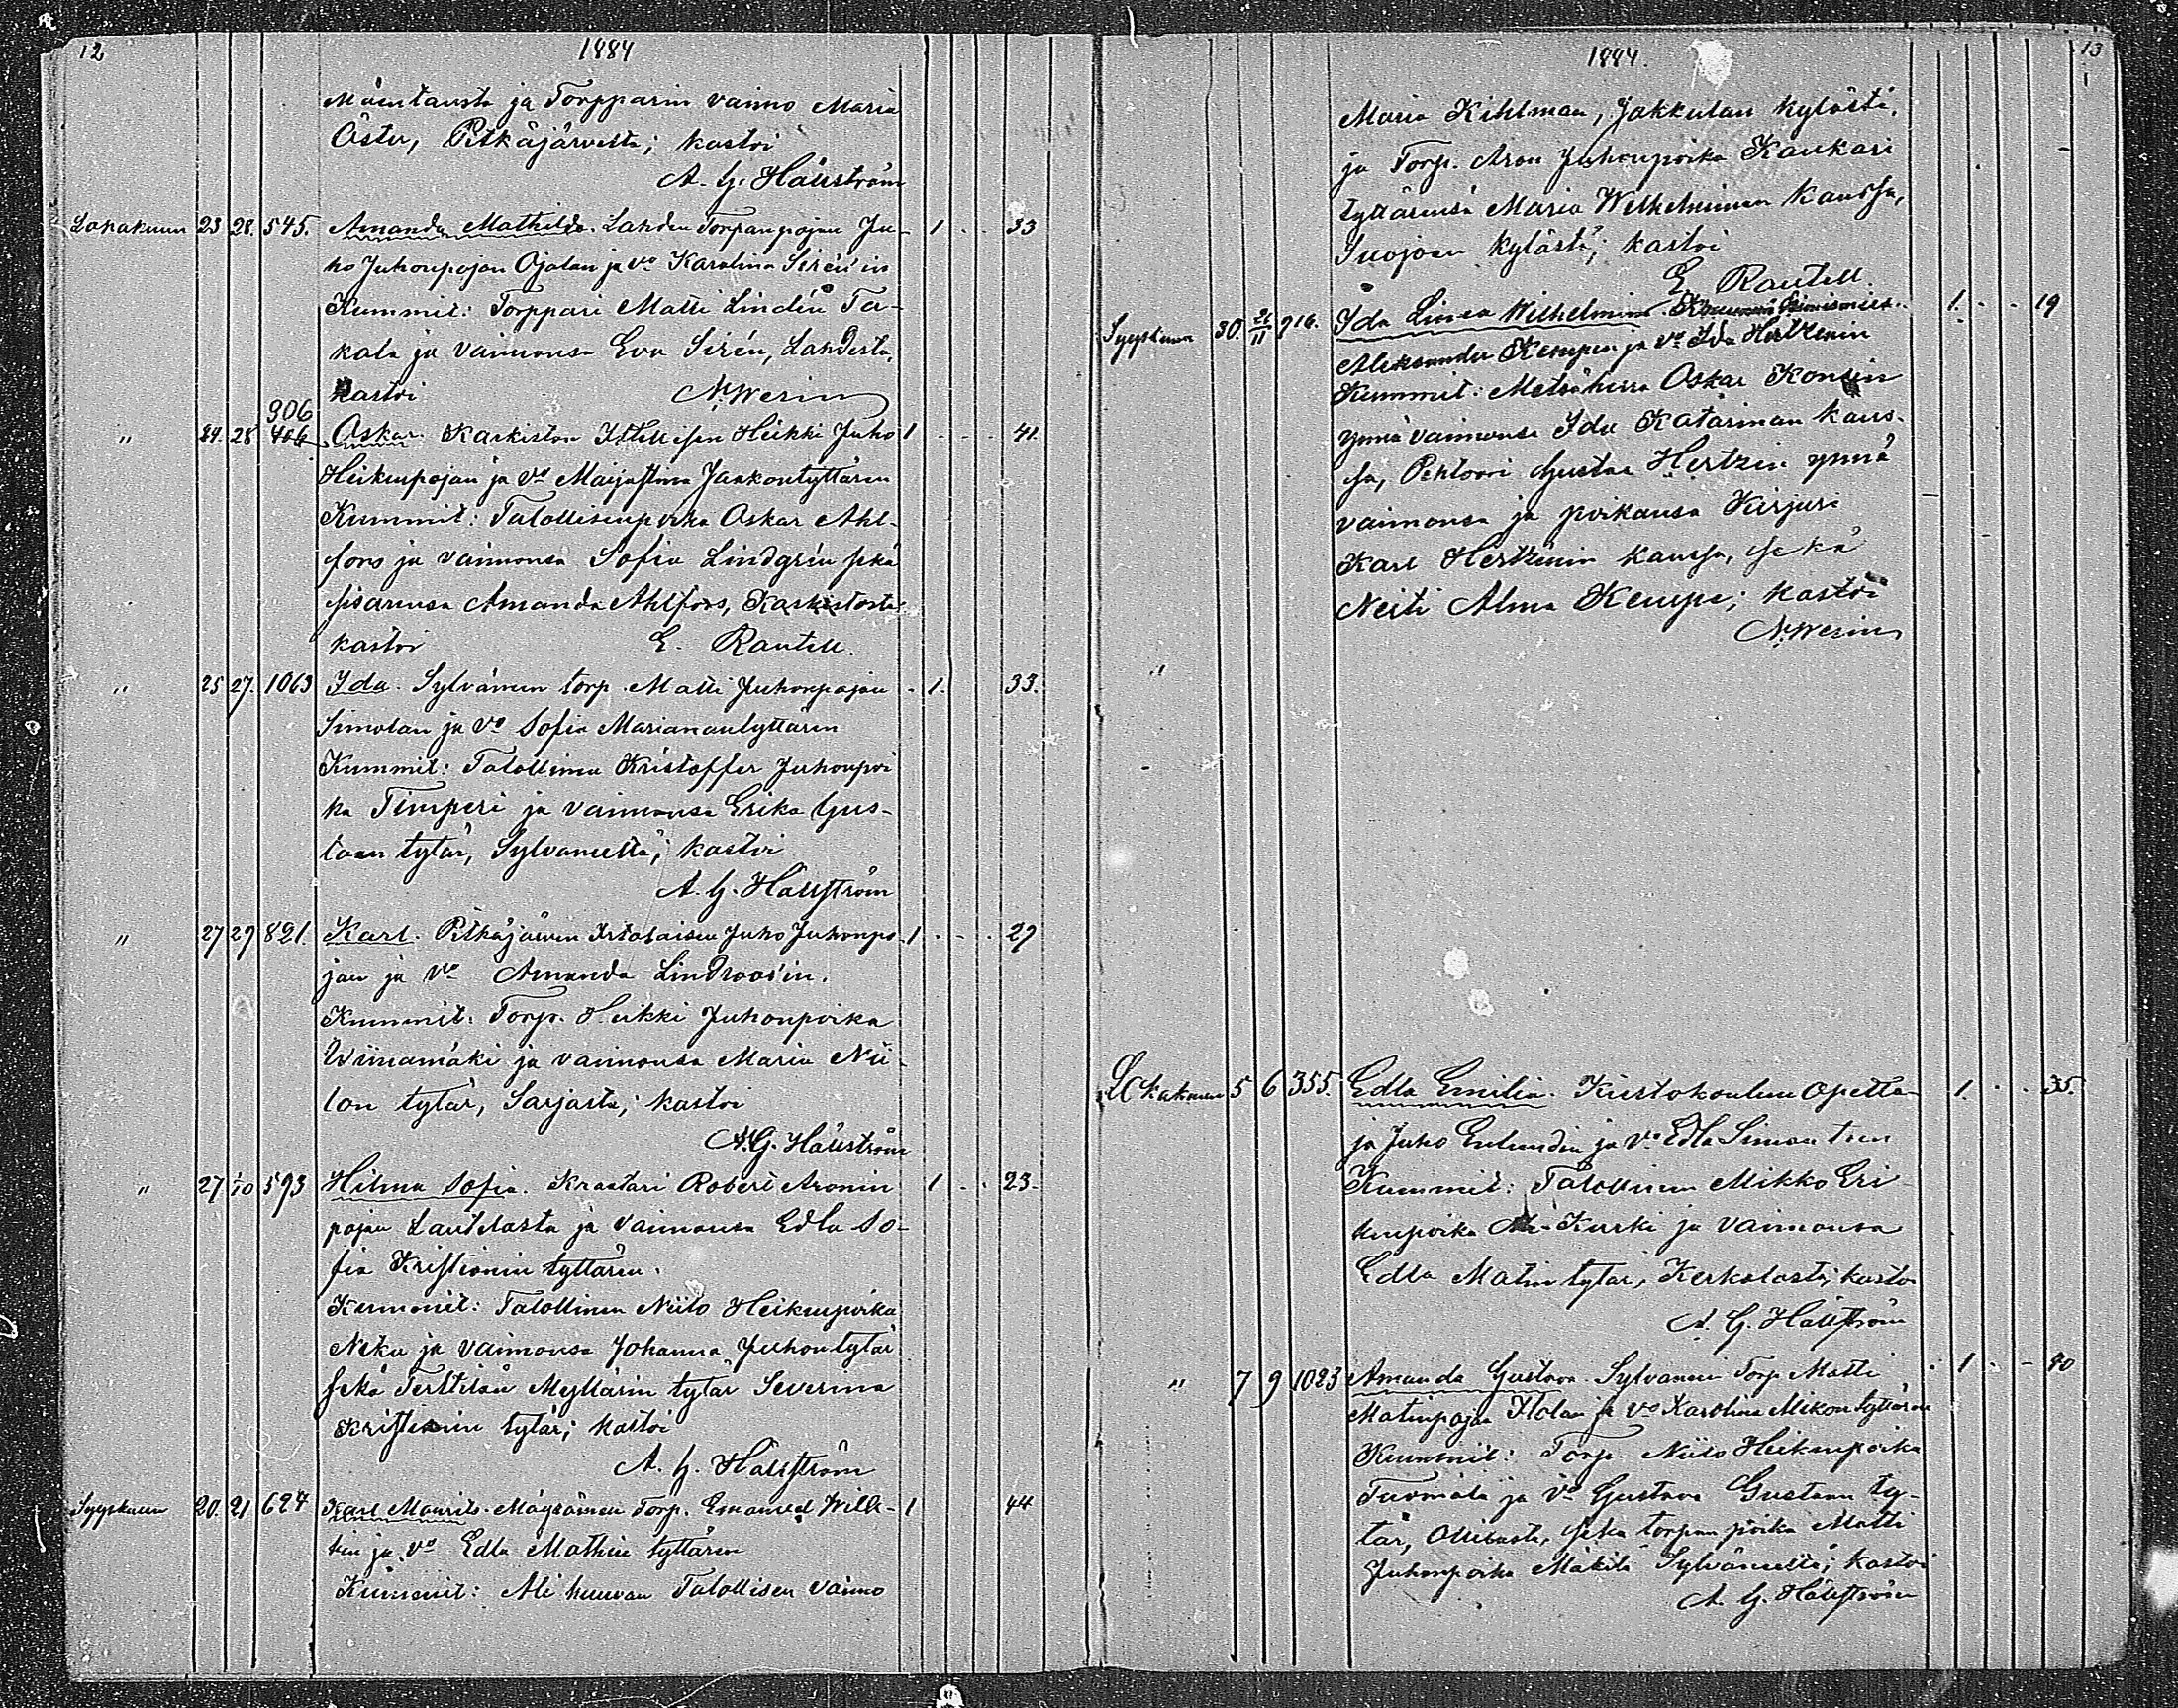 12 1884
ja Torpparin vaimo Maria
Öster, Pitkäjärveltä; kastoi
A. G. Hällström
Lokakuun 23 28. 545. Amanda Mathilda. Lahden Torparipojan Ju- 1 33
ho Juhonpojan Ojalan ja vo Karolina Sirén'in
Kummit: Torppari Matti Lindén Ta-
kala ja vaimonsa Eva Sirén, Lahdesta,
kastoi N. Wesin
306
" 24. 28 406 Oskar. Karkiston Itsellisen Heikki Juho 1 41.
Heikinpojan ja vo Maijastina Jaakontyttären
Kummit: Talollisenpoika Oskar Ahl-
fors ja vaimonsa Sofia Lindgrén sekä
sisarensa Amanda Ahlfors, Karkistosta:
kastoi E. Rautell.
" 25 27. 1063 Ida. Sylvänen torp. Matti Juhonpojan 1. 33.
Simolan ja vo Sofia Marianantyttären
Kummit: Talollinen Kristoffer Juhonpoi
ka Timperi ja vaimonsa Erika Gus-
taan tytär, Sylvaneltä; kastoi
A. G. Hällström
" 27 29 821. Karl. Pitkäjärven Irtolaisen Juho Juhonpo 1 29
jan ja vo Amanda Lindroos'in.
Kummit: Torp. Heikki Juhonpoika
Wiinamäki ja vaimonsa Maria Nii-
lon tytär, Sarjasta; kastoi
A. G. Hällström
" 27 /10 593 Hilma Sofia. Kraatari Robert Aronin 1 23.
pojan Lautelasta ja vaimonsa Edla So-
fia Kristianin tyttären.
Kummit: Talollinen Niilo Heikinpoika
Neku ja vaimonsa Johanna Juhontytär
sekä Terttilän Myllärin tytär Severina
Kristianin tytär; kastoi
A. G. Hällström
Syyskuun 20. 21 624 Karl Maurits. Torp. Emanuel Will- 1 44
ja vo Edla Mathin tyttären
Kummit: Talollisen vaimo
1884. 13
Maria Kihlman, Jakkulan kylästä,
ja Torp. Aron Juhonpoika Kaukari
tyttärensä Maria Wilhelminan kanssa,
Suojoen kylästä; kastoi
E. Rautell.
Syyskuun 30. 21/11 216. Ida Linea Wilhelmina. 1. 19
Aleksander Kempen ja vo Ida Hertzenin
Kummit: Metsäherra Oskar Konsin
ynnä vaimonsa Ida Katariinan kans-
sa, Pehtoori Gustav Hertzen ynnä
vaimonsa ja poikansa Kirjuri
Karl Hertzenin kanssa, sekä
Neiti Alma Kempe; kastoi
N. Wesin
"
Lokakuun 5 6 355. Edla Emilia. Kiertokoulun Opetta- 1. 35.
ja Juho Enlundin ja vo Edla Simontren
Kummit: Talollinen Mikko Eri-
kinpoika Ali-Kurki ja vaimonsa
Edla Matin tytär, Kerkolasta; kastoi
A. G. Hällström
" 7 9 1023 Amanda Gustava. Sylvanen Torp. Matti 1 40
Matinpojan Holan ja vo Karolina Mikon tyttären
Kummit: Torp. Niilo Heikinpoika
Tuomola ja vo Gustava Gustaan ty-
tär, Ollilasta, sekä torpan poika Matti
Juhonpoika Mäkilä Sylvänestä; kastoi
A. G. Hällström